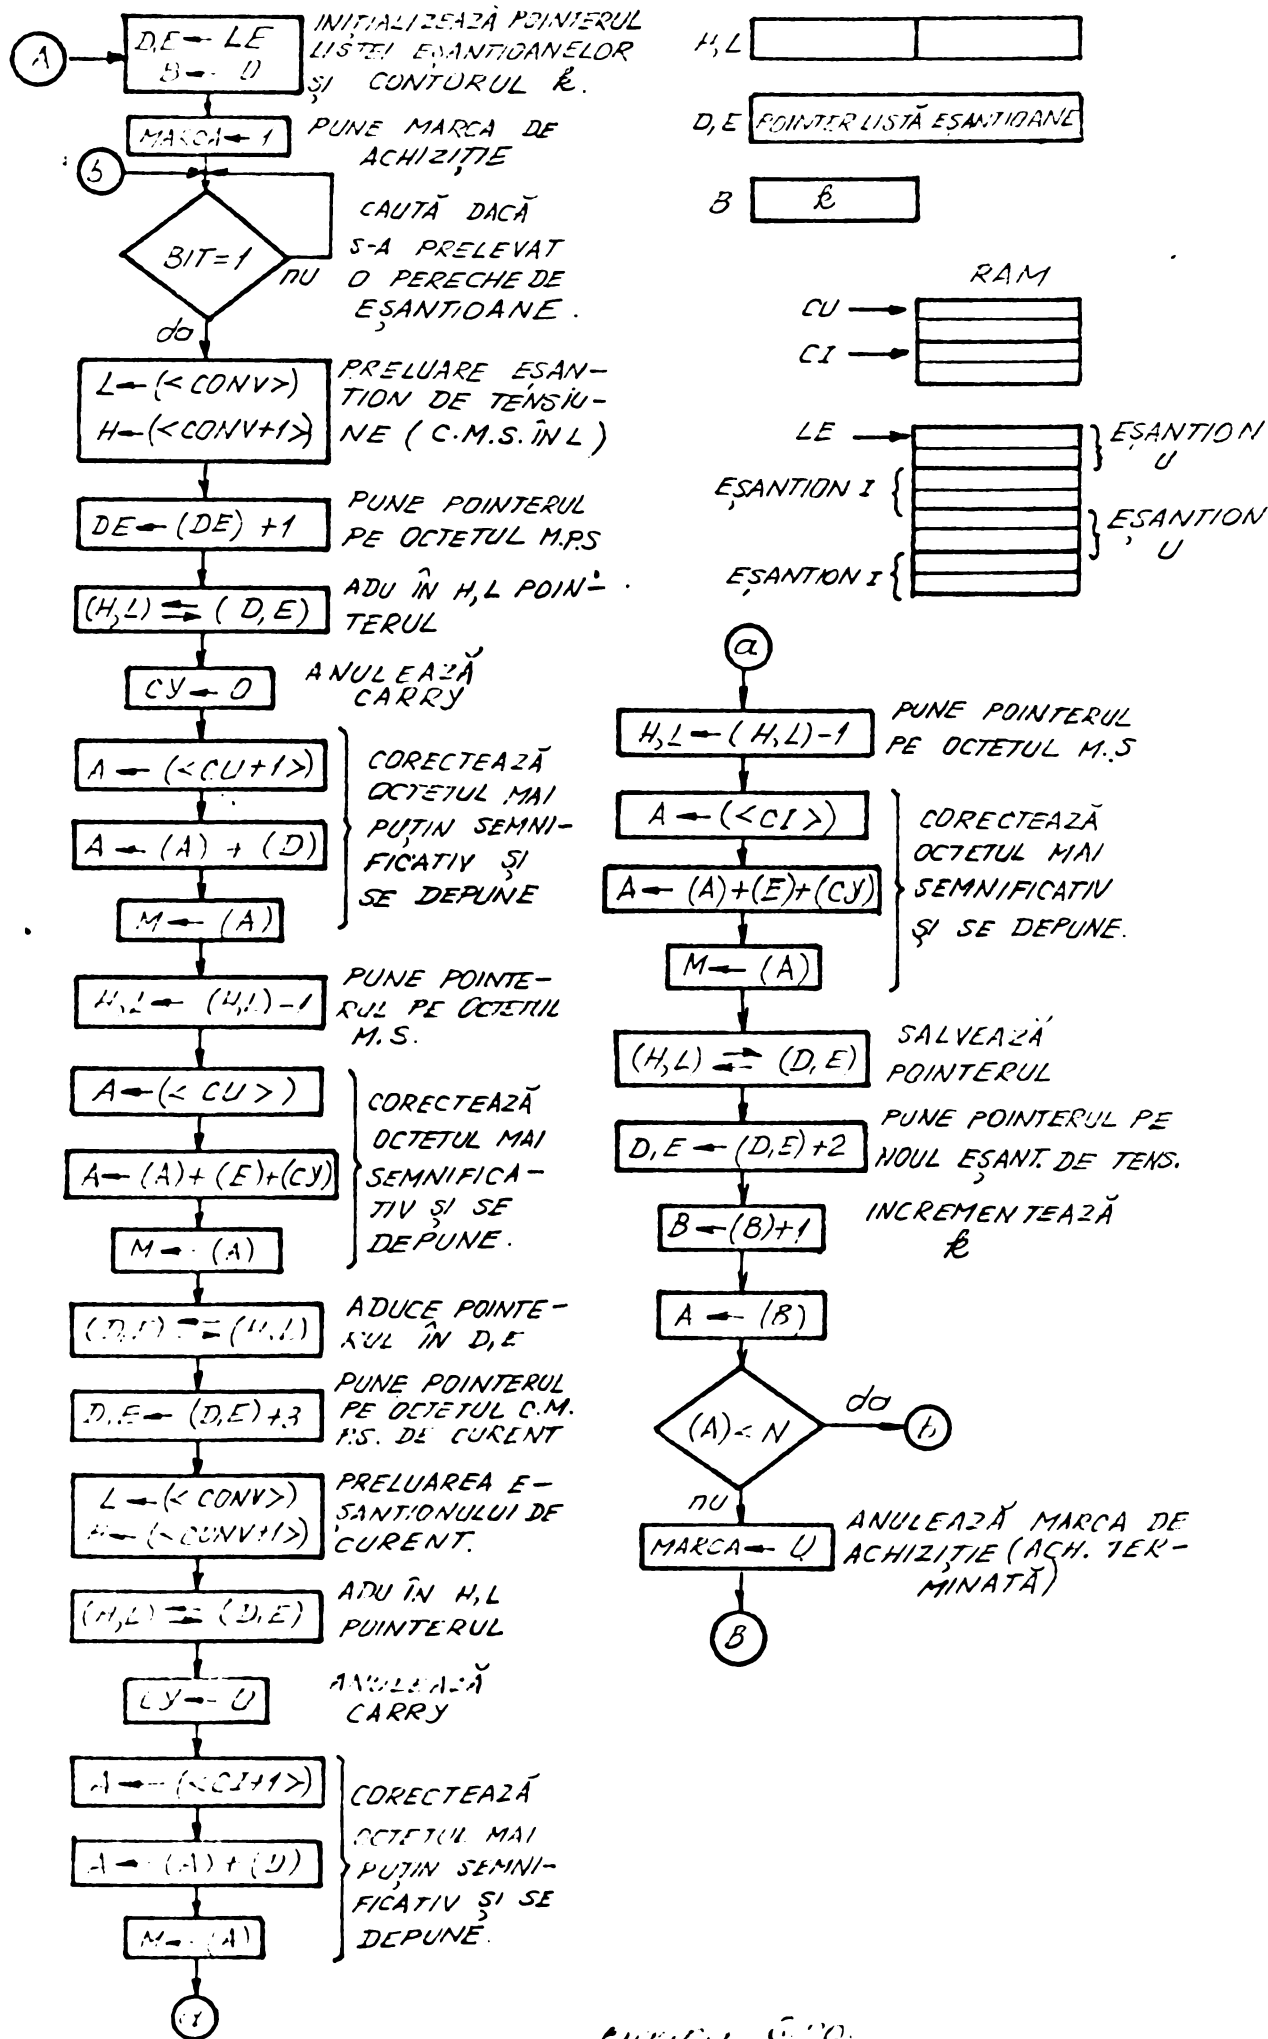 A
D,E ← LE
B ← D
INIȚIALIZEAZĂ POINTERUL
LISTEI EȘANTIOANELOR
ȘI CONTORUL k.
MARCA ← 1
PUNE MARCA DE
ACHIZIȚIE
b
BIT=1
nu
da
CAUTĂ DACĂ
S-A PRELEVAT
O PERECHE DE
EȘANTIOANE.
L ← (<CONV>)
H ← (<CONV+1>)
PRELUARE EȘAN-
TION DE TENSIU-
NE (C.M.S. ÎN L)
DE ← (DE) +1
PUNE POINTERUL
PE OCTETUL M.P.S
(H,L) ⇄ (D,E)
ADU ÎN H,L POIN-
TERUL
CY ← 0
ANULEAZĂ
CARRY
A ← (<CU+1>)
A ← (A) + (D)
M ← (A)
CORECTEAZĂ
OCTETUL MAI
PUȚIN SEMNI-
FICATIV ȘI
SE DEPUNE
H,L ← (H,L)-1
PUNE POINTE-
RUL PE OCTETUL
M.S.
A ← (<CU>)
A ← (A) + (E)+(CY)
M ← (A)
CORECTEAZĂ
OCTETUL MAI
SEMNIFICA-
TIV ȘI SE
DEPUNE.
(D,E) ⇄ (H,L)
ADUCE POINTE-
RUL ÎN D,E
D,E ← (D,E)+3
PUNE POINTERUL
PE OCTETUL C.M.
P.S. DE CURENT
L ← (<CONV>)
H ← (<CONV+1>)
PRELUAREA E-
ȘANTIONULUI DE
CURENT.
(H,L) ⇄ (D,E)
ADU ÎN H,L
POINTERUL
CY ← 0
ANULEAZĂ
CARRY
A ← (<CI+1>)
A ← (A) + (D)
M ← (A)
CORECTEAZĂ
OCTETUL MAI
PUȚIN SEMNI-
FICATIV ȘI SE
DEPUNE.
a
H,L
D,E POINTER LISTĂ EȘANTIOANE
B k
RAM
CU
CI
LE
EȘANTION
U
EȘANTION I
EȘANTION
U
EȘANTION I
a
H,L ← (H,L)-1
PUNE POINTERUL
PE OCTETUL M.S
A ← (<CI>)
A ← (A)+(E)+(CY)
M ← (A)
CORECTEAZĂ
OCTETUL MAI
SEMNIFICATIV
ȘI SE DEPUNE.
(H,L) ⇄ (D,E)
SALVEAZĂ
POINTERUL
D,E ← (D,E)+2
PUNE POINTERUL PE
NOUL EȘANT. DE TENS.
B ← (B)+1
INCREMENTEAZĂ
k
A ← (B)
(A) < N
da
b
nu
MARCA ← 0
ANULEAZĂ MARCA DE
ACHIZIȚIE (ACH. TER-
MINATĂ)
B